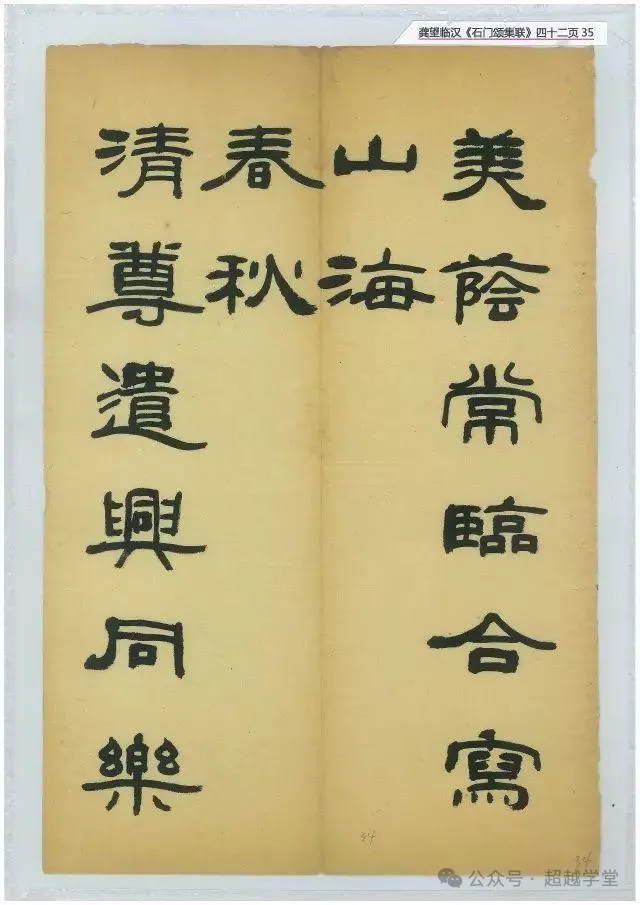 龚望临汉《石门颂集联》四十二页 35
美蔭常臨合寫
山海
清尊遣興同樂
春秋
34
34
公众号 · 超越学堂